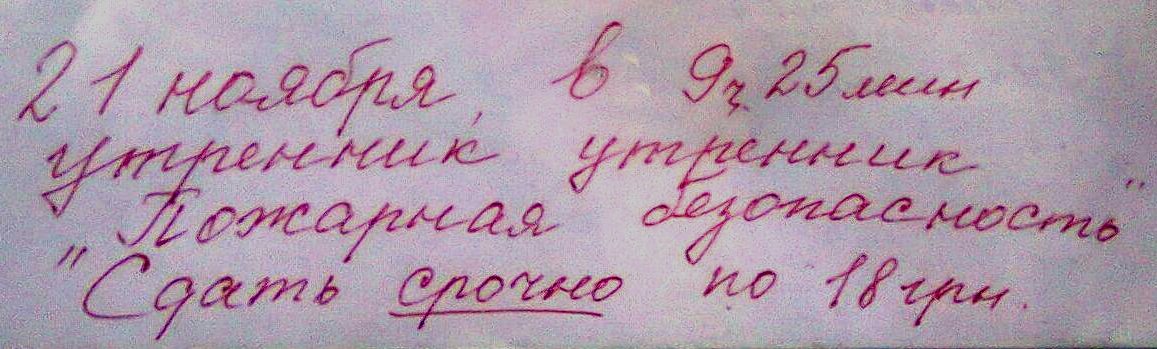 21 ноября, в 9ч 25мин
утренник утренник
"Пожарная безопасность"
Сдать срочно по 18 грн.